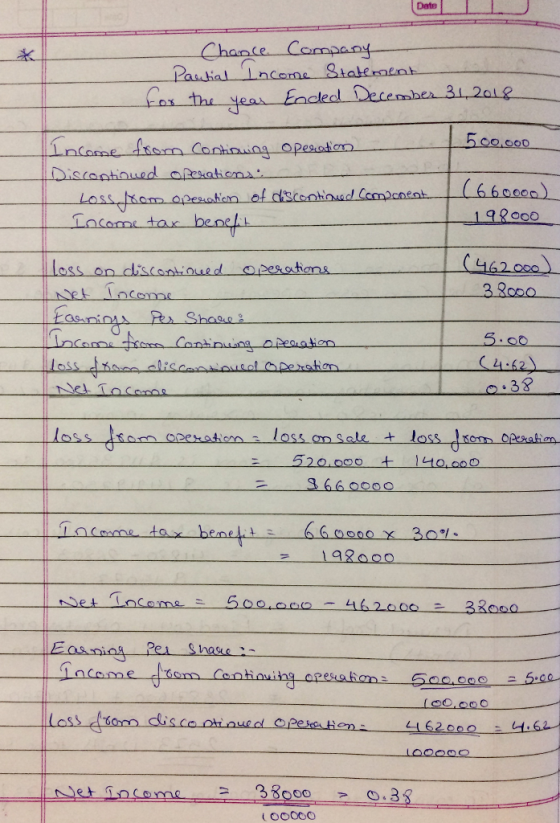 Date
* Chance Company
Partial Income Statement
For the year Ended December 31, 2018
Income from Continuing operation 500,000
Discontinued operations:
Loss from operation of discontinued Component (660000)
Income tax benefit 198000
loss on discontinued operations (462000)
Net Income 38000
Earnings Per Share:
Income from Continuing operation 5.00
loss from discontinued operation (4.62)
Net Income 0.38
loss from operation = loss on sale + loss from operation
= 520,000 + 140,000
= $660000
Income tax benefit = 660000 x 30%
= 198000
Net Income = 500,000 - 462000 = 38000
Earning Per Share :-
Income from continuing operation = 500,000 = 5.00
100,000
loss from discontinued operation = 462000 = 4.62
100000
Net Income = 38000 = 0.38
100000